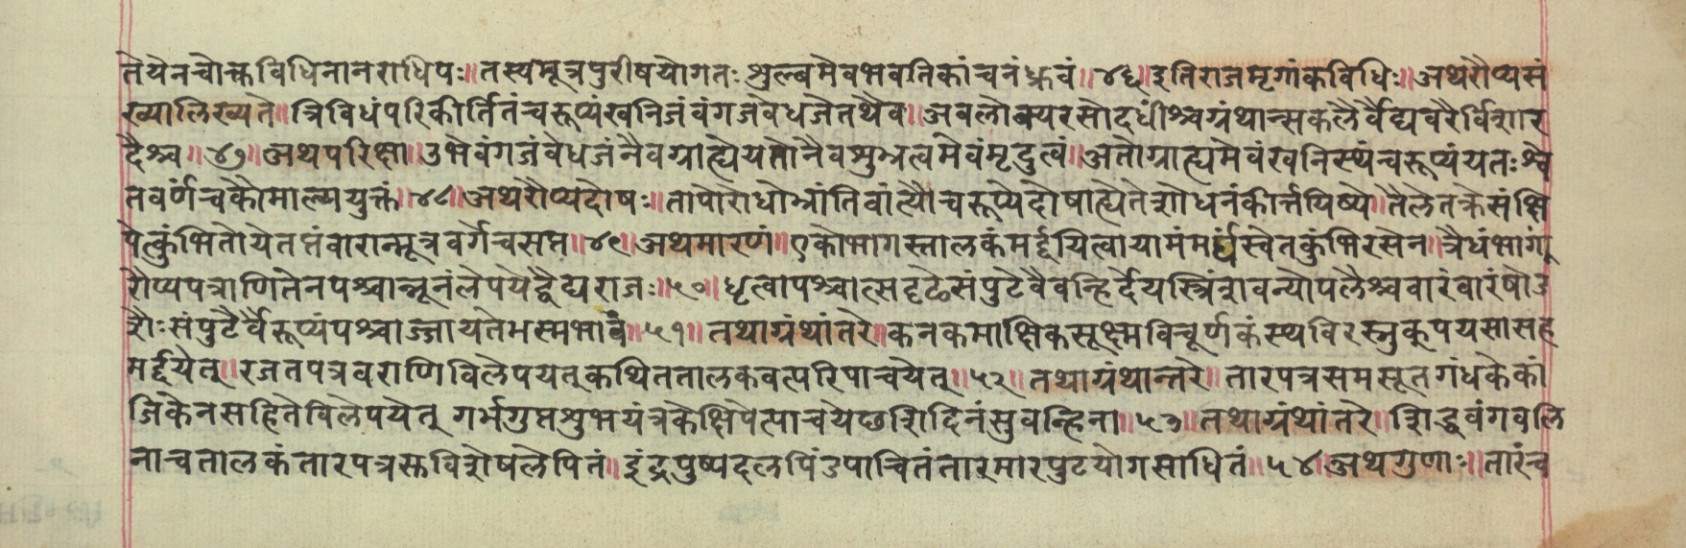 तेयेनचोक्तविधिनानराधिपः॥तस्यमूत्रपुरीषयोगतःशुल्बमेवभवतिकांचनंध्रुवं॥४६॥इतिराजमृगांकविधिः॥अथरौप्यसं
ख्यालिख्यते॥त्रिविधंपरिकीर्तितंचरूप्यंखनिजंवंगजवेधजेतथैव॥अवलोक्यरसोदधींश्चग्रंथान्सकलैर्वैद्यवरैर्विशार
दैश्च॥४७॥अथपरिक्षा॥उभेवंगजंवेधजंनैवग्राह्येयतोनैवशुभ्रत्वमेवंमृदुत्वं॥अतोग्राह्यमेवंखनिस्थंचरूप्यंयतःश्वे
तवर्णंचकोमाल्ययुक्तं॥४८॥अथरौप्यदोषः॥तापोरोधोभ्रांतिवांत्यौचरूप्येदोषाह्येतेशोधनंकीर्त्तयिष्ये॥तैलेतक्रेसंक्षि
पेत्कुंभितोयेतप्तंवारान्मूत्रवर्गेचसप्त॥४९॥अथमारणं॥एकोभागस्तालकंमर्द्दयित्वायामंमर्द्यंस्वेतकुंभिरसेन॥त्रैधंभागं
रौप्यपत्राणितेनपश्चान्नूनंलेपयेद्वैद्यराजः॥५०॥धृत्वापश्चात्सदृढेसंपुटेवैवन्हिर्देयस्त्रिंशवन्योपलैश्चवारंवारंषोउ
शैःसंपुटैर्वैरूप्यंपश्चाज्जायतेभस्मभावं॥५१॥तथाग्रंथांतरे॥कनकमाक्षिकसूक्ष्मविचूर्णकंस्थविरस्नुकूपयसासह
मर्द्दयेत्॥रजतपत्रवराणिविलेपयेत्कथिततालकवत्परिपाचयेत्॥५२॥तथाग्रंथान्तरे॥तारपत्रसमसूतगंधकेकां
जिकेनसहितेविलेपयेत्गर्भगुप्तशुभयंत्रकेक्षिपेत्पाचयेछशिदिनंसुवन्हिना॥५३॥तथाग्रंथांतरे॥शिद्धवंगवलि
नाचतालकंतारपत्रस्तविशेषलेपितं॥इंद्रपुष्पदलपिंउपाचितंतारमारपुटयोगसाधितं॥५४॥अथगुणाः॥तारंच